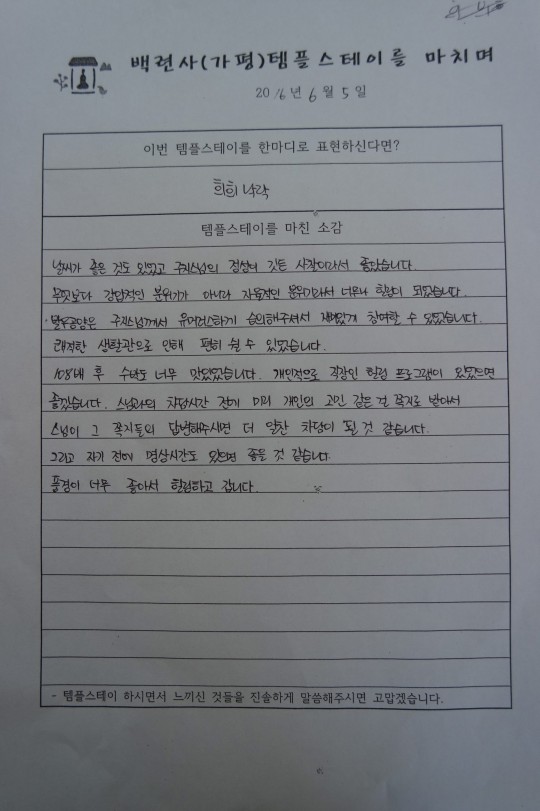 백련사(가평)템플스테이를 마치며
2016년 6월 5일
이번 템플스테이를 한마디로 표현하신다면?
희희낙락
템플스테이를 마친 소감
날씨가 좋은 것도 있었고 주지스님의 정성이 깃든 사찰이라서 좋았습니다.
무엇보다 강압적인 분위기가 아니라 자율적인 분위기라서 너무나 힐링이 되었습니다.
발우공양은 주지스님께서 유머러스하게 강의해주셔서 재미있게 참여할 수 있었습니다.
쾌적한 생활관으로 인해 편히 쉴 수 있었습니다.
108배 후 수박도 너무 맛있었습니다. 개인적으로 직장인 힐링 프로그램이 있었으면
좋겠습니다. 스님과의 차담시간 전에 미리 개인의 고민 같은 걸 쪽지로 받아서
스님이 그 쪽지들의 답변해주시면 더 알찬 차담이 될 것 같습니다.
그리고 자기 전에 명상시간도 있으면 좋을 것 같습니다.
풍경이 너무 좋아서 힐링하고 갑니다.
- 템플스테이 하시면서 느끼신 것들을 진솔하게 말씀해주시면 고맙겠습니다.